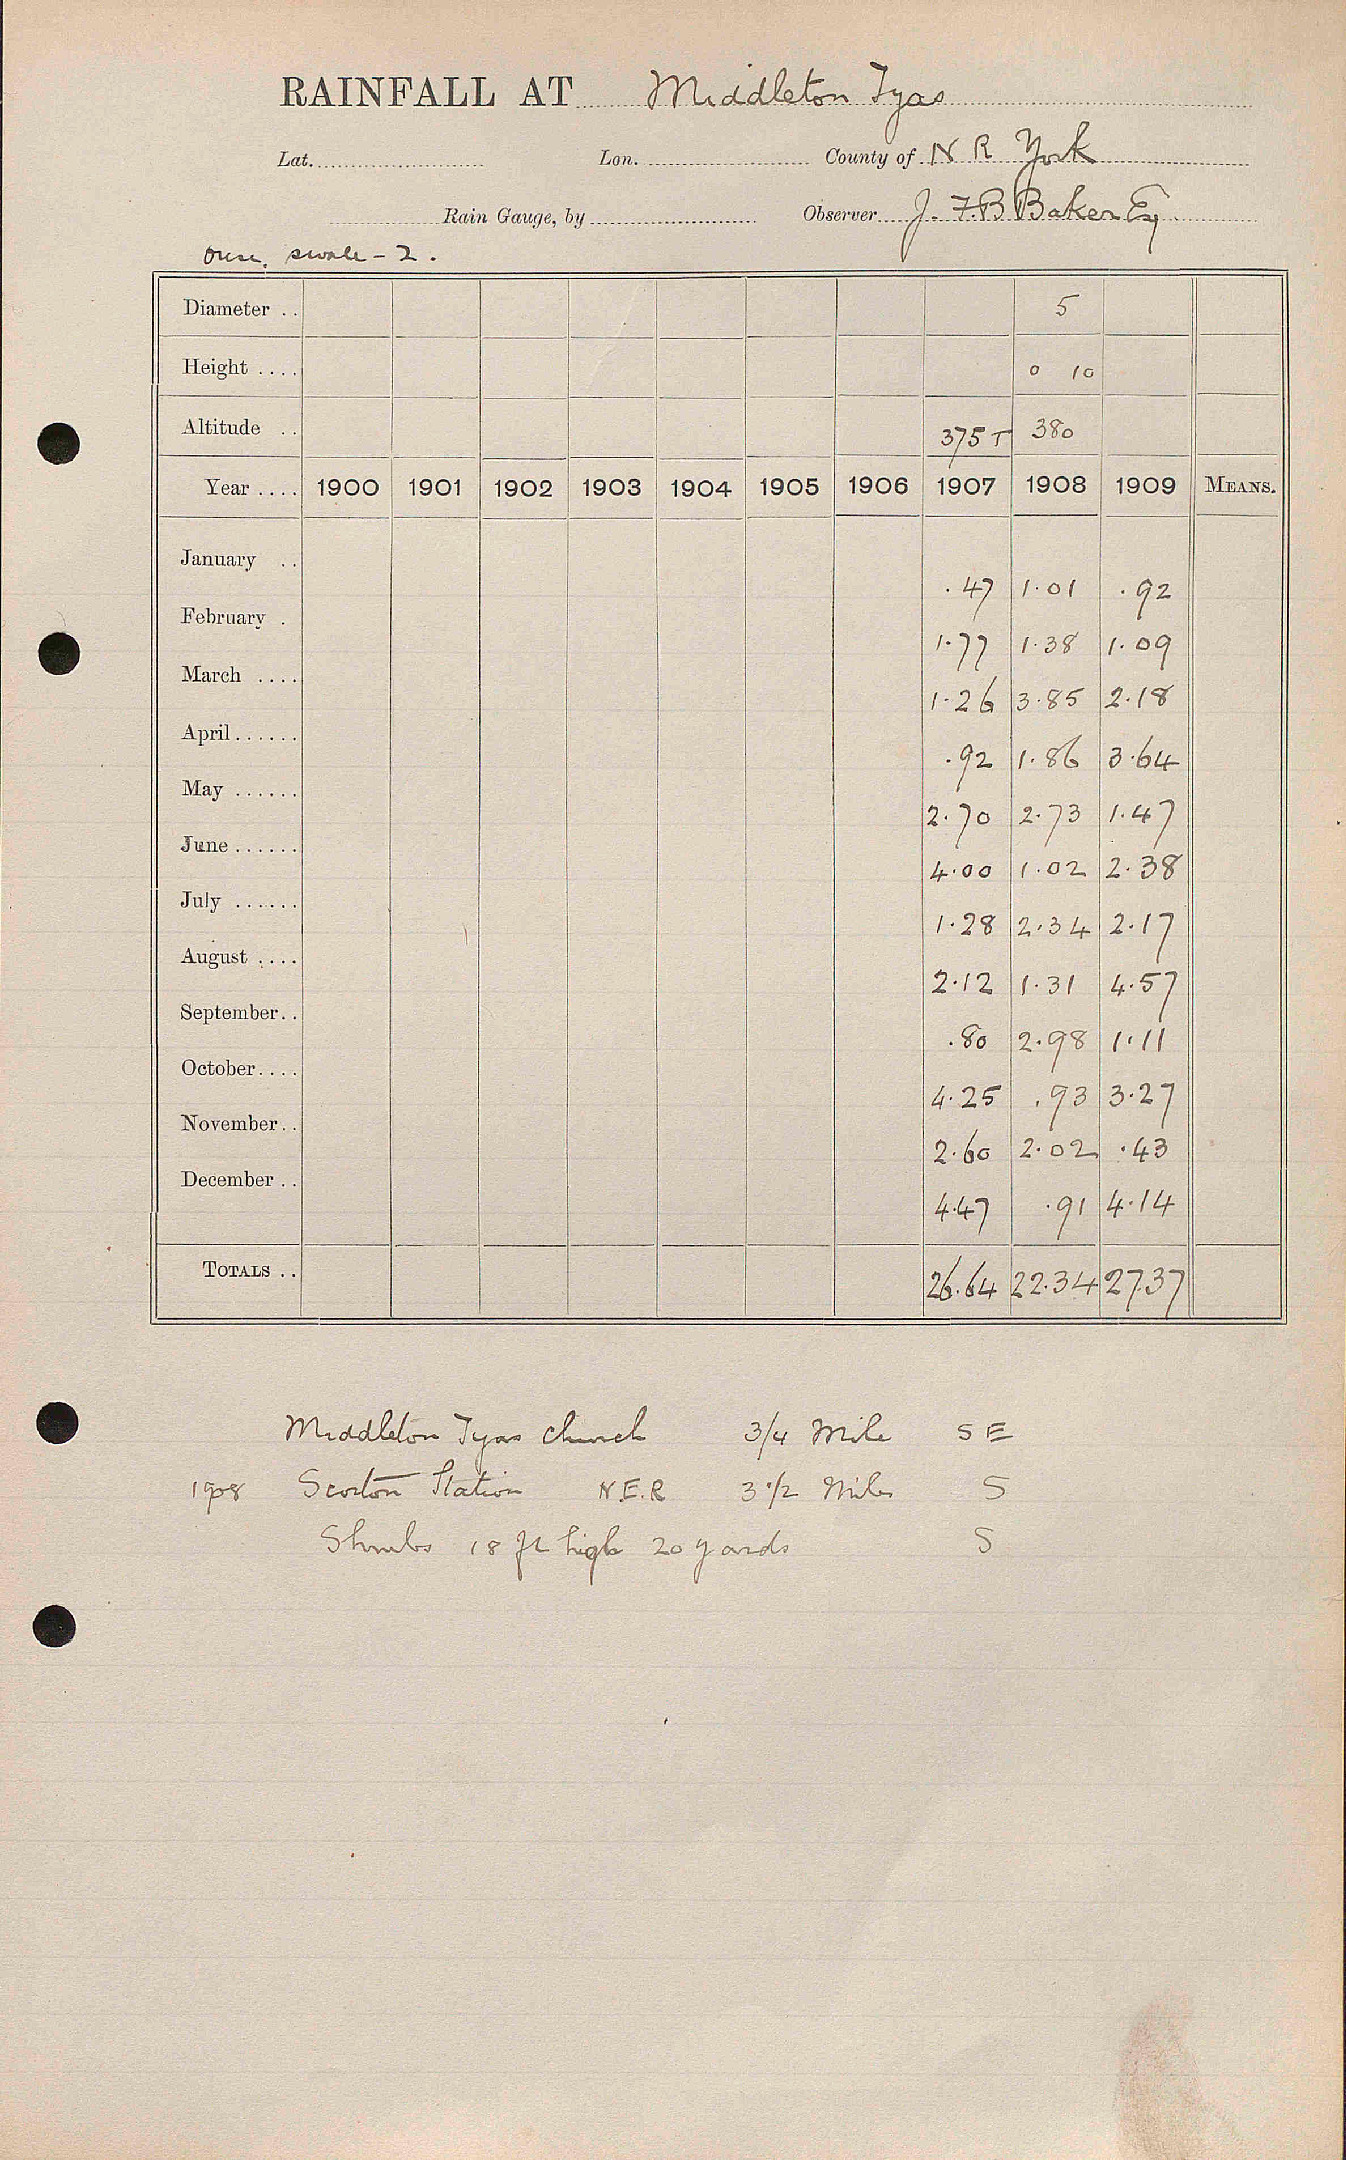 RAINFALL AT Middleton Tyas
Lat. Lon. County of N R York
Rain Gauge, by Observer J. F. B Baker Esq
Ouse, Swale - 2.
Diameter .. 5
Height .... 0 10
Altitude .. 375 T 380
Year .... 1900 1901 1902 1903 1904 1905 1906 1907 1908 1909 MEANS.
January .. .47 1.01 .92
February . 1.77 1.38 1.09
March .... 1.26 3.85 2.18
April...... .92 1.86 3.64
May ...... 2.70 2.73 1.47
June...... 4.00 1.02 2.38
July ...... 1.28 2.34 2.17
August .... 2.12 1.31 4.57
September.. .80 2.98 1.11
October.... 4.25 .93 3.27
November.. 2.60 2.02 .43
December .. 4.47 .91 4.14
TOTALS .. 26.64 22.34 27.37
Middleton Tyas Church 3/4 Mile S E
1908 Scorton Station N.E.R 3 1/2 Miles S
Shrubs 18 ft high 20 yards S